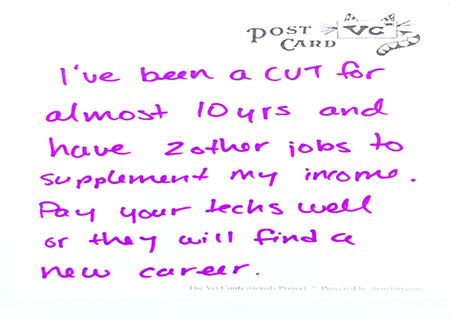 POST
CARD
VC
I've been a CVT for
almost 10 yrs and
have 2 other jobs to
supplement my income.
Pay your techs well
or they will find a
new career.
The Vet Confessionals Project * Powered by dvm360.com